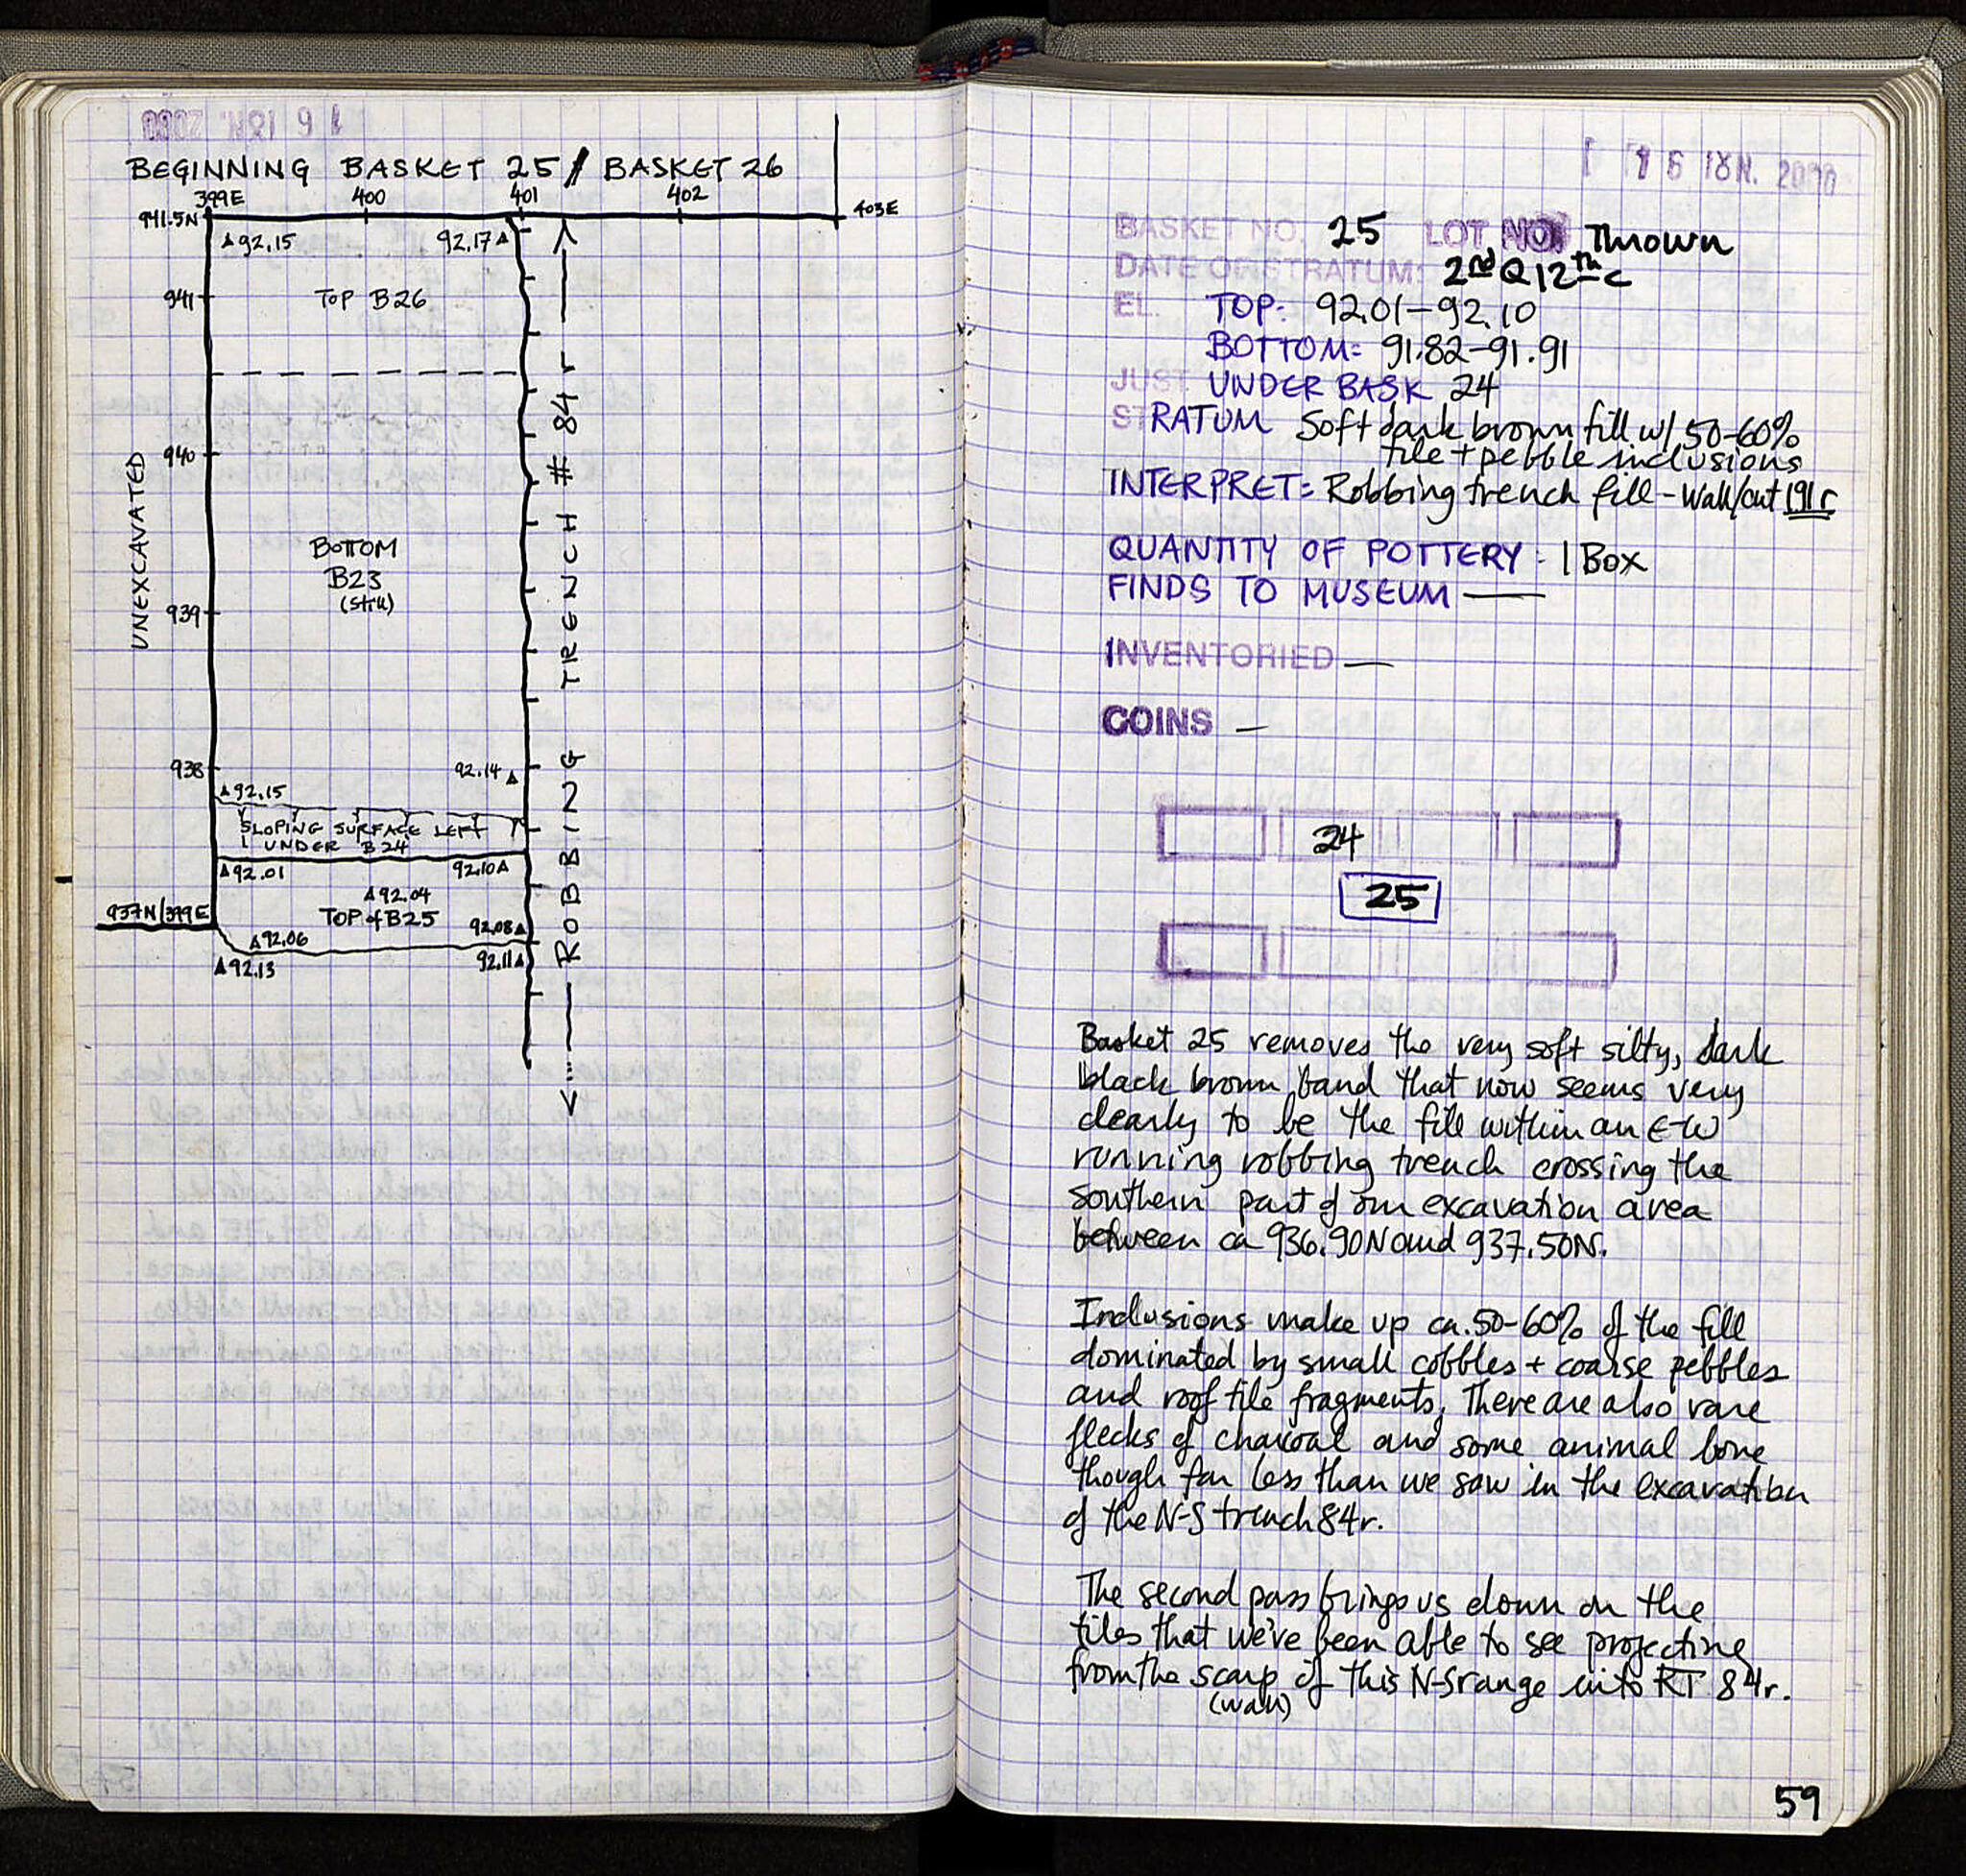 BEGINNING BASKET 25 / BASKET 26
399E 400 401 402 403E
941.5N
92.15 92.17
941
TOP B26
940
UNEXCAVATED
BOTTOM
B23
(still)
939
ROBBING TRENCH # 84 r
938
92.14
92.15
SLOPING SURFACE LEFT
UNDER B24
92.01 92.10
92.04
937N/399E
TOP of B25
92.08
92.06
92.13 92.11
16 IYN. 2000
BASKET NO. 25 LOT NO. Thrown
DATE OF STRATUM: 2nd Q 12th c
EL. TOP: 92.01-92.10
BOTTOM: 91.82-91.91
JUST UNDER BASK 24
STRATUM Soft dark brown fill w/ 50-60%
tile + pebble inclusions
INTERPRET: Robbing trench fill - wall/cut 191r
QUANTITY OF POTTERY: 1 BOX
FINDS TO MUSEUM —
INVENTORIED —
COINS —
24
25
Basket 25 removes the very soft silty, dark
black brown band that now seems very
clearly to be the fill within an E-W
running robbing trench crossing the
southern part of our excavation area
between ca 936.90N and 937.50N.
Inclusions make up ca. 50-60% of the fill
dominated by small cobbles + coarse pebbles
and roof tile fragments, There are also rare
flecks of charcoal and some animal bone
though far less than we saw in the excavation
of the N-S trench 84r.
The second pass brings us down on the
tiles that we've been able to see projecting
from the scarp of this N-S range into RT 84r.
(wall)
59